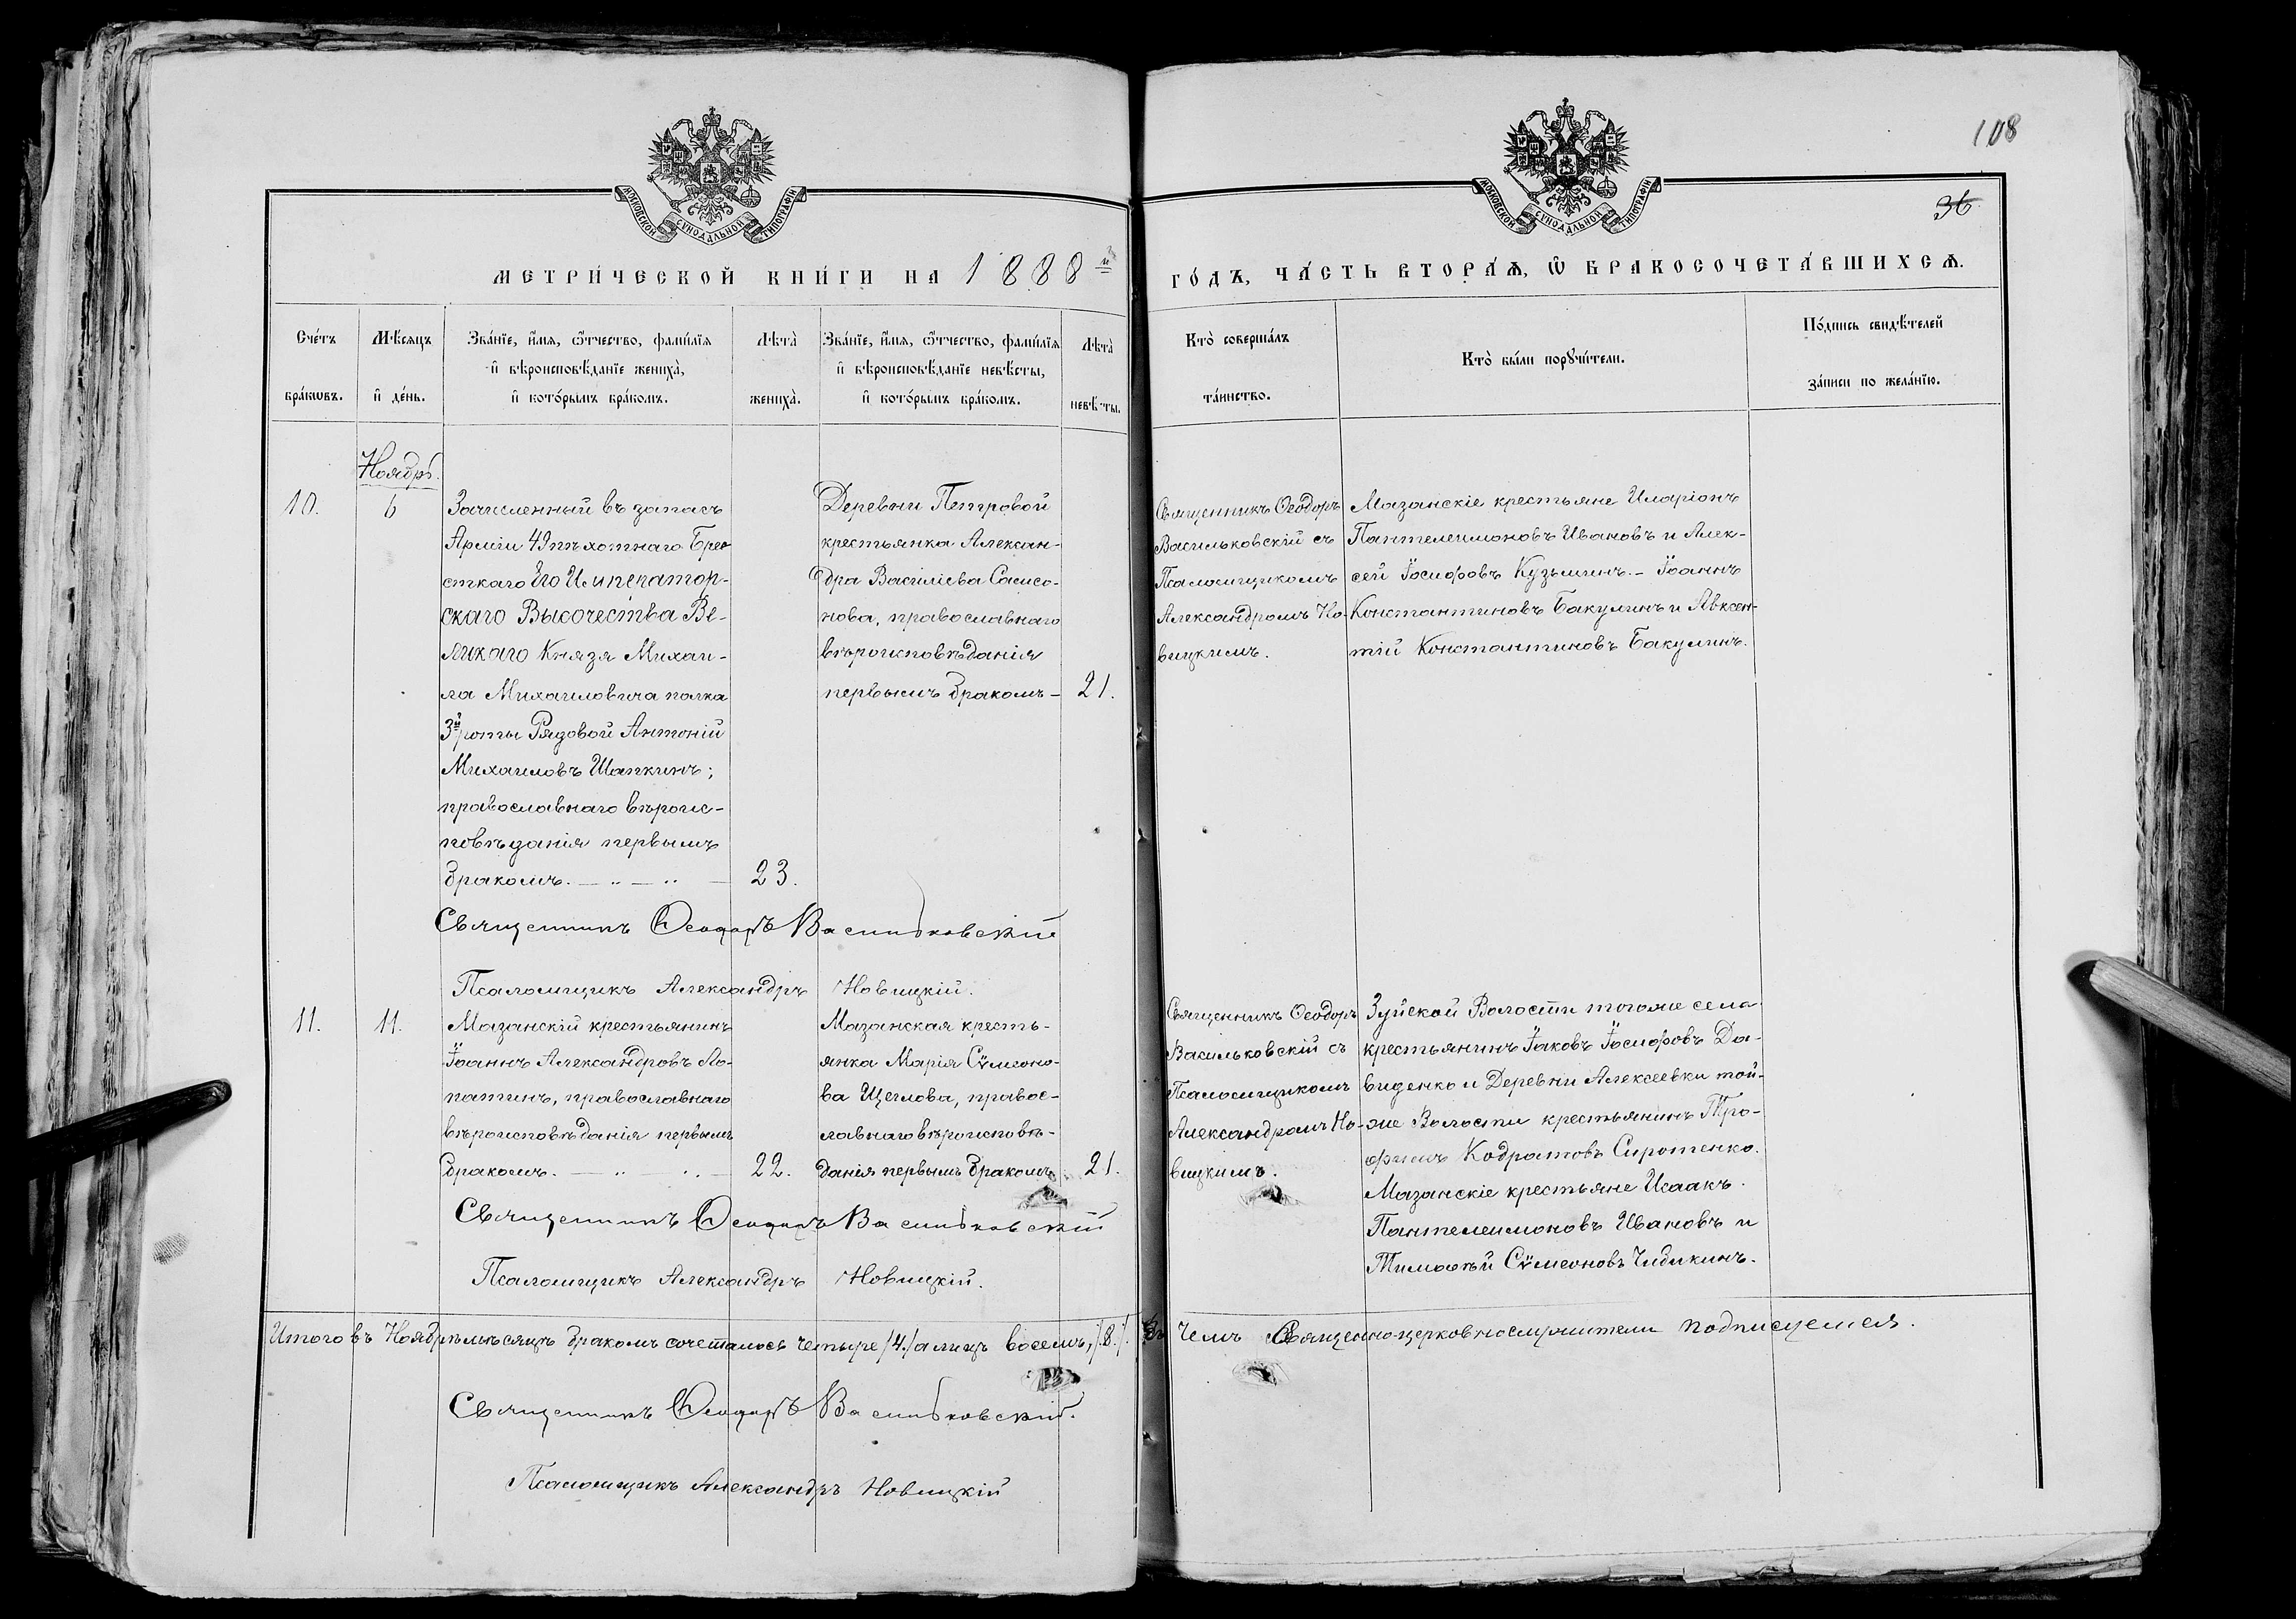 108
36
МОСКОВСКОЙ СѴНОДАЛЬНОЙ ТИПОГРАФІИ
МОСКОВСКОЙ СѴНОДАЛЬНОЙ ТИПОГРАФІИ
МЕТРИ́ЧЕСКОЙ КНИ́ГИ НА 1888й
ГО́ДЪ, ЧА́СТЬ ВТОРА́Ѧ, Ѽ БРАКОСОЧЕТА́ВШИХСѦ.
Сче́тъ
бра́кѡвъ.
Мѣ́сяцъ
и҆ де́нь.
Зва́нїе, и҆́мя, ѻ҆́тчество, фами́лїя
и҆ вѣроисповѣ́данїе жениха̀,
и҆ кото́рымъ бра́комъ.
Лѣта̀
жениха̀.
Зва́нїе, и҆́мя, ѻ҆́тчество, фами́лїя
и҆ вѣроисповѣ́данїе невѣ́сты,
и҆ кото́рымъ бра́комъ.
Лѣта̀
невѣ́сты.
Кто̀ соверша́лъ
та́инство.
Кто̀ бы́ли порꙋчи́тели.
По́дпись свидѣ́телей
за́писи по жела́нїю.
Ноябрь.
10.
6
Зачисленный въ запасъ
Арміи 49 пѣхотнаго Брес
сткаго Его Император-
скаго Высочества Ве-
ликаго Князя Михаи-
ла Михаиловича полка
3й роты Рядовой Антоній
Михаиловъ Шапкинъ;
православнаго вѣроис-
повѣданія первымъ
бракомъ.
23.
Деревни Петровой
крестьянка Алексан-
дра Василіева Самсо-
нова, православнаго
вѣроисповѣданія
первымъ бракомъ –
21.
Священникъ Ѳеодоръ
Васильковскій съ
Псаломщикомъ
Александромъ Но-
вицкимъ.
Мазанскіе крестьяне Иларіонъ
Пантелеимоновъ Ивановъ и Алек-
сей Іосифовъ Кузьминъ. – Іоаннъ
Константиновъ Бакулинъ и Авксен-
тій Константиновъ Бакулинъ.
Священникъ Ѳеодоръ Васильковскій
Псаломщикъ Александръ Новицкій.
11.
11.
Мазанскій крестьянинъ
Іоаннъ Александровъ Ло-
патинъ, православнаго
вѣроисповѣданія первымъ
бракомъ.
22.
Мазанская кресть-
янка Марія Сѵмеоно-
ва Щеглова, правос-
лавнаго вѣроисповѣ-
данія первымъ бракомъ
21.
Священникъ Ѳеодоръ
Васильковскій съ
Псаломщикомъ
Александромъ Но-
вицкимъ.
Зуйской Волости тогоже села
крестьянинъ Іаковъ Іосифовъ Да-
виденко и Деревни Алексеевки той-
же Волости крестьянинъ Тро-
фимъ Кодратовъ Сиротенко.
Мазанскіе крестьяне Исаакъ
Пантелеимоновъ Ивановъ и
Тимоѳей Сѵмеоновъ Чидикинъ.
Священникъ Ѳеодоръ Васильковскій
Псаломщикъ Александръ Новицкій.
Итого въ Ноябрѣ мѣсяцѣ бракомъ сочеталось четыре /4./ а лицъ восемь, /.8./. Въ чемъ Священно-церковнослужители подписуемся.
Священникъ Ѳеодоръ Васильковскій.
Псаломщикъ Александръ Новицкій